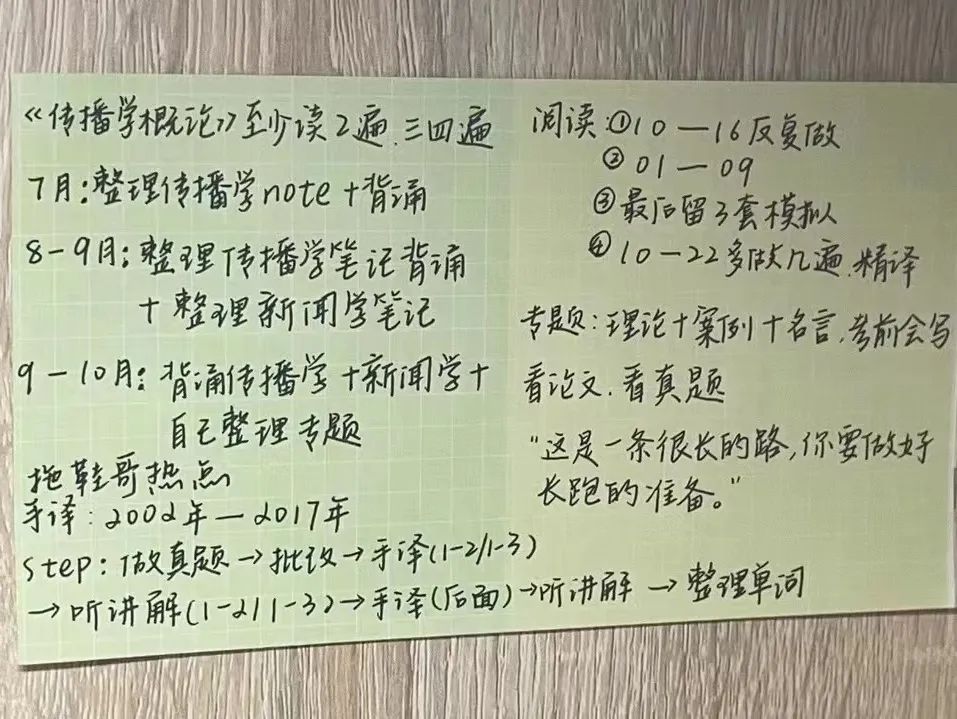 《传播学概论》至少读2遍.三四遍
7月:整理传播学note+背诵
8-9月:整理传播学笔记背诵
+整理新闻学笔记
9-10月:背诵传播学+新闻学+
自己整理专题
拖鞋哥热点
手译:2002年—2017年
step:做真题→批改→手译(1-2/1-3)
→听讲解(1-2/1-3)→手译(后面)→听讲解→整理单词
阅读:①10—16反复做
②01—09
③最后留3套模拟
④10—22多做几遍.精译
专题:理论+案例+名言,考前会写
看论文.看真题
"这是一条很长的路,你要做好
长跑的准备。"